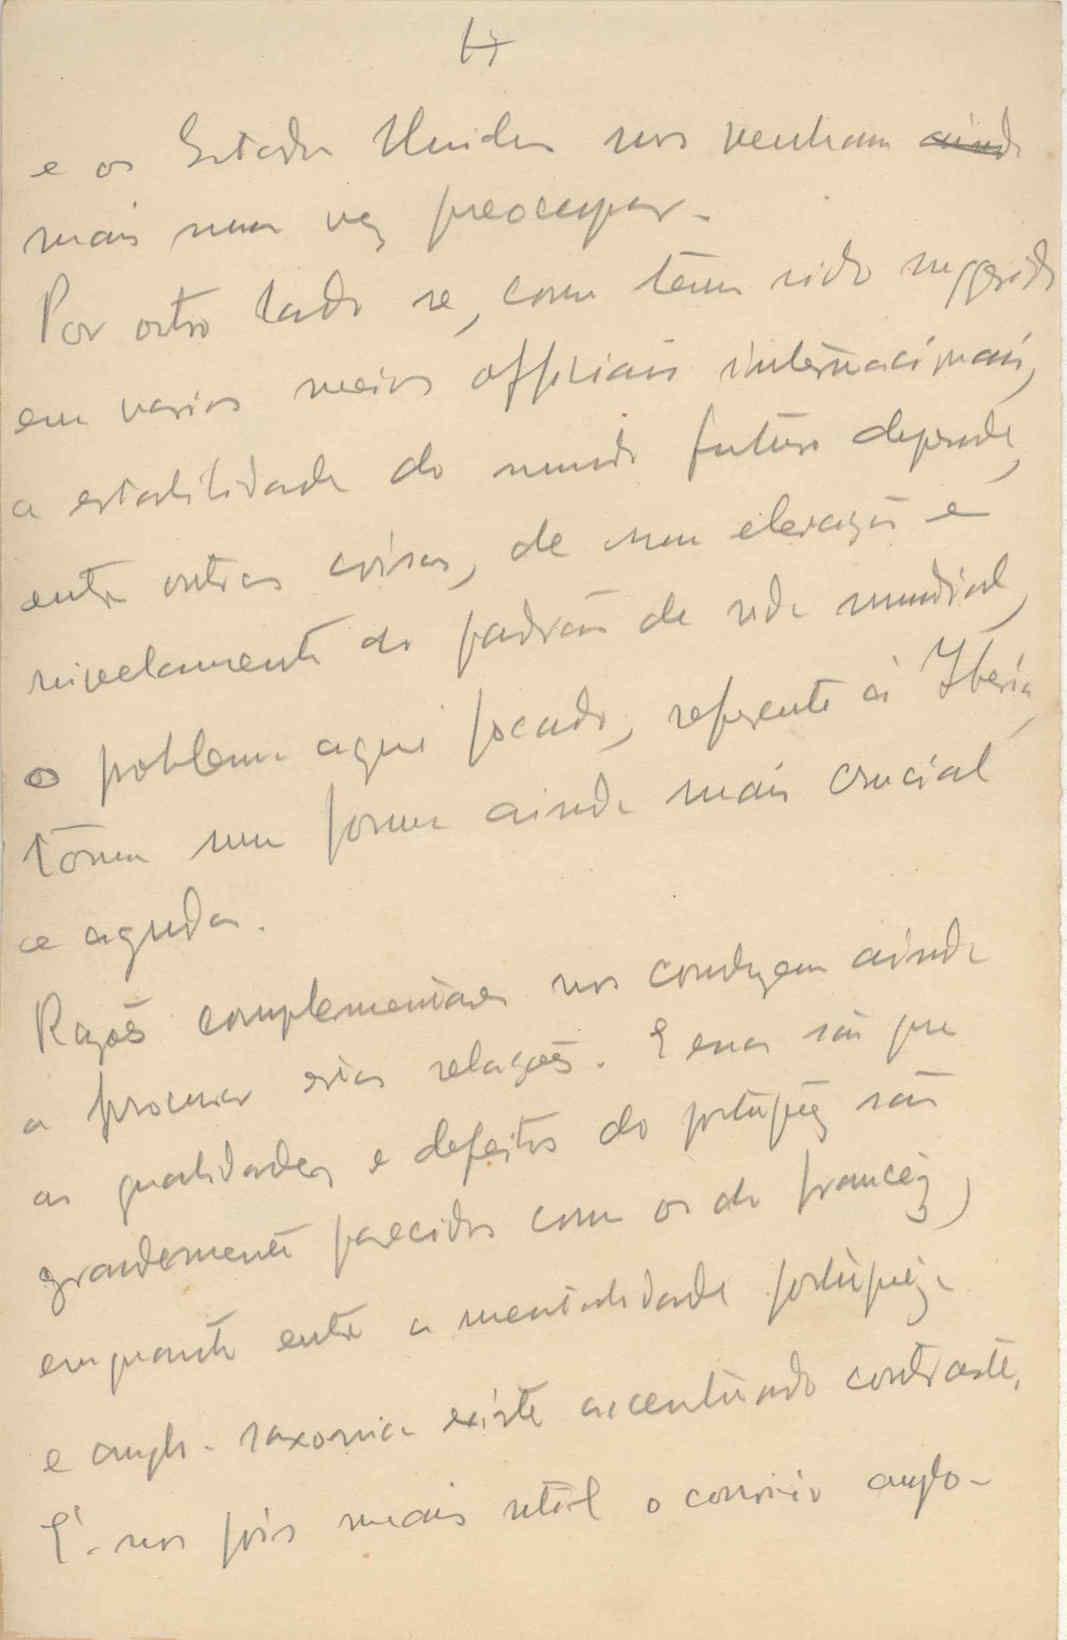 e os Estados Unidos nos venham ~~ainda~~
mais uma vez preocupar.
Por outro lado se, como tem sido suggerido
em varios meios officiais internacionais,
a estabilidade do mundo futuro depende,
entre outras coisas, de uma elevação e
nivelamento do padrão de vida mundial,
o problema aqui focado, referente á Iberia,
tóma uma forma ainda mais crucial
e aguda.
Razões complementares nos conduzem ainda
a procurar estas relações. E essas são que
as qualidades e defeitos do português são
grandemente parecidos com os do francêz,
emquanto entre a mentalidade portuguêza
e anglo-saxonica existe accentuado contraste.
É-nos pois mais util o convivio anglo-